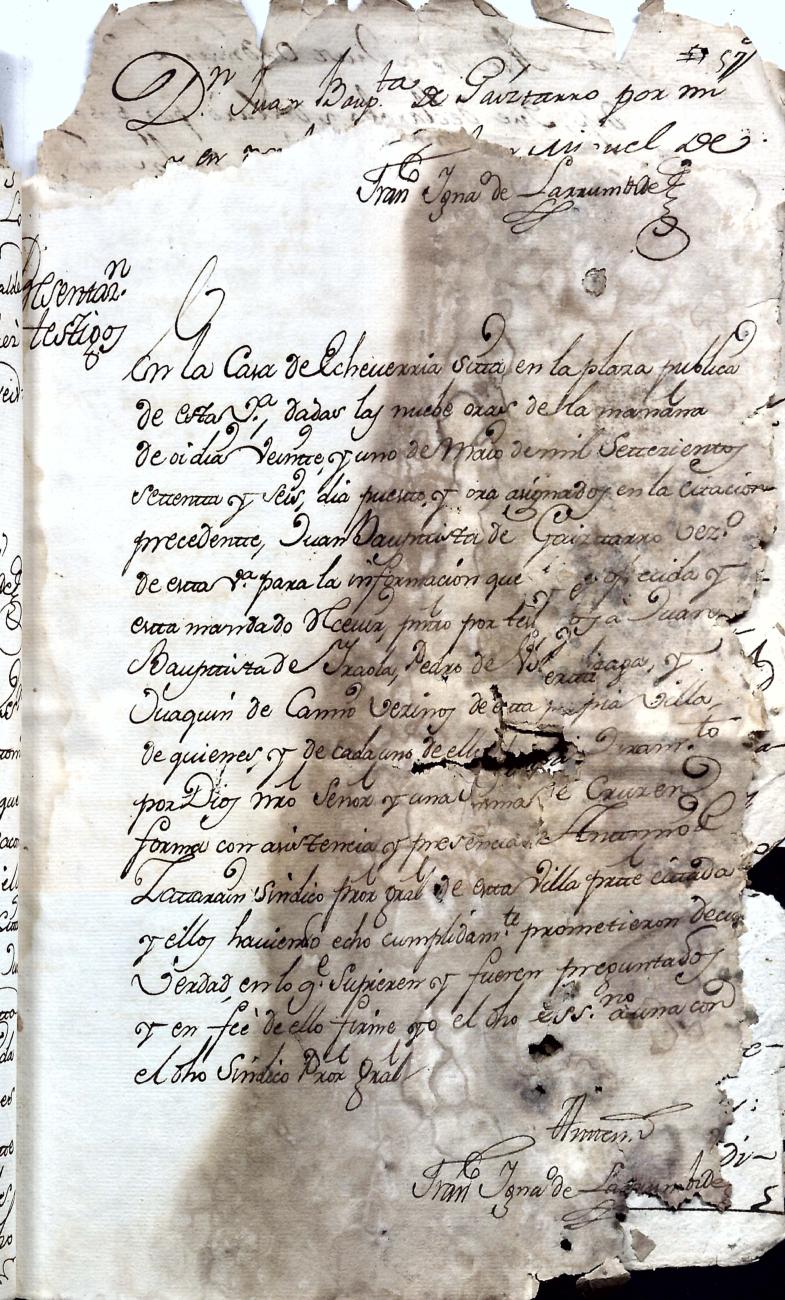 57
Dn Juan Baupta de Gaiztarro por mi
y en Miguel de
Fran Igno de Larrumbide
Resentan
testigos
En la Casa de Echeverria sitta en la plaza publica
de esta Va, dadas las nuebe oras de la mañana
de oi dia Veinte y uno de Maio de mil Settezientos
settentta y Seis, dia puesto y ora asignados en la citacion
precedentte, Juan Bauptista de Gaiztarro vezo
de estta va para la informacion que ofrecida y
estta mandado Recevir, pntto por testigos a Juan
Bauptista de Yraola, Pedro de y
Juaquin de Camio vezinos de estta propia Villa,
de quienes, y de cada uno de ellos Juramto
por Dios nro Señor y una señal de Cruz en
forma con asistencia y presencia de Antonio de
Zattarain Sindico Pror gral de estta Villa partte cittada
y ellos haviendo echo cumplidamte prometieron decir
Verdad en lo qe Supieren y fueren preguntados
y en feé de ello firme yo el dho essno a una con
el dho Sindico Pror Gral
Antemi
Fran Igno de Larrumbide